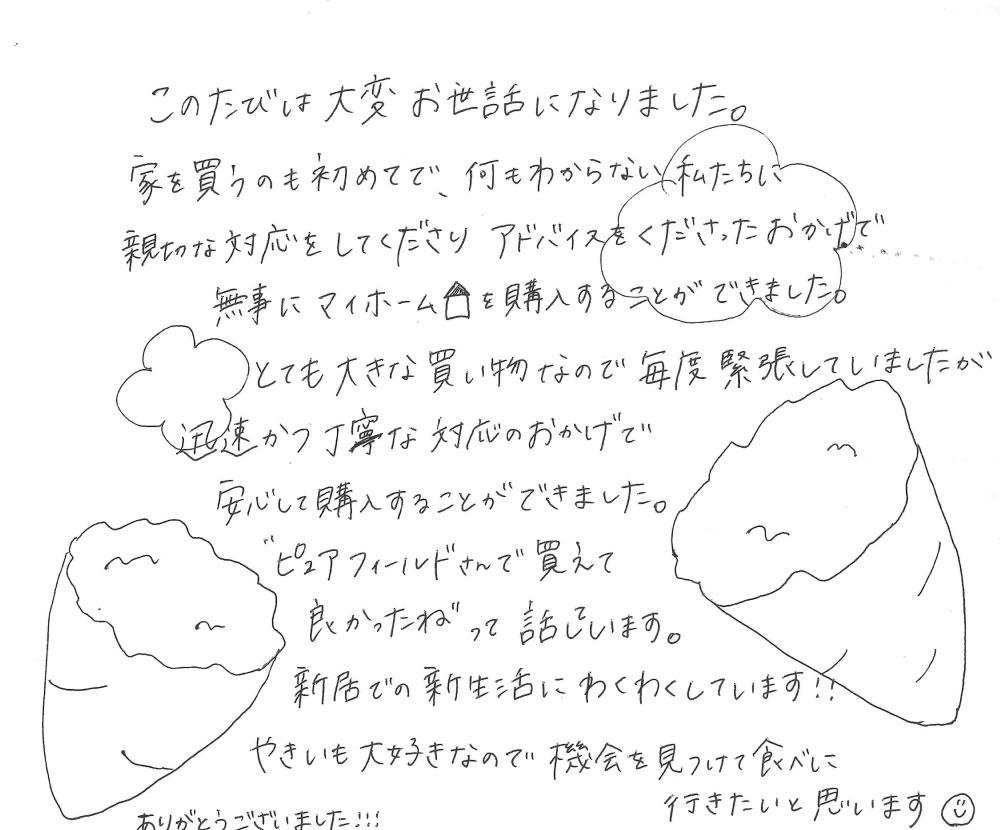 このたびは大変お世話になりました。
家を買うのも初めてで、何もわからない私たちに
親切な対応をしてくださり アドバイスをくださったおかげで
無事にマイホームを購入することができました。
とても大きな買い物なので毎度緊張していましたが
迅速かつ丁寧な対応のおかげで
安心して購入することができました。
"ピュアフィールドさんで買えて
良かったね"って話しています。
新居での新生活にわくわくしています!!
やきいも大好きなので機会を見つけて食べに
行きたいと思います
ありがとうございました!!!